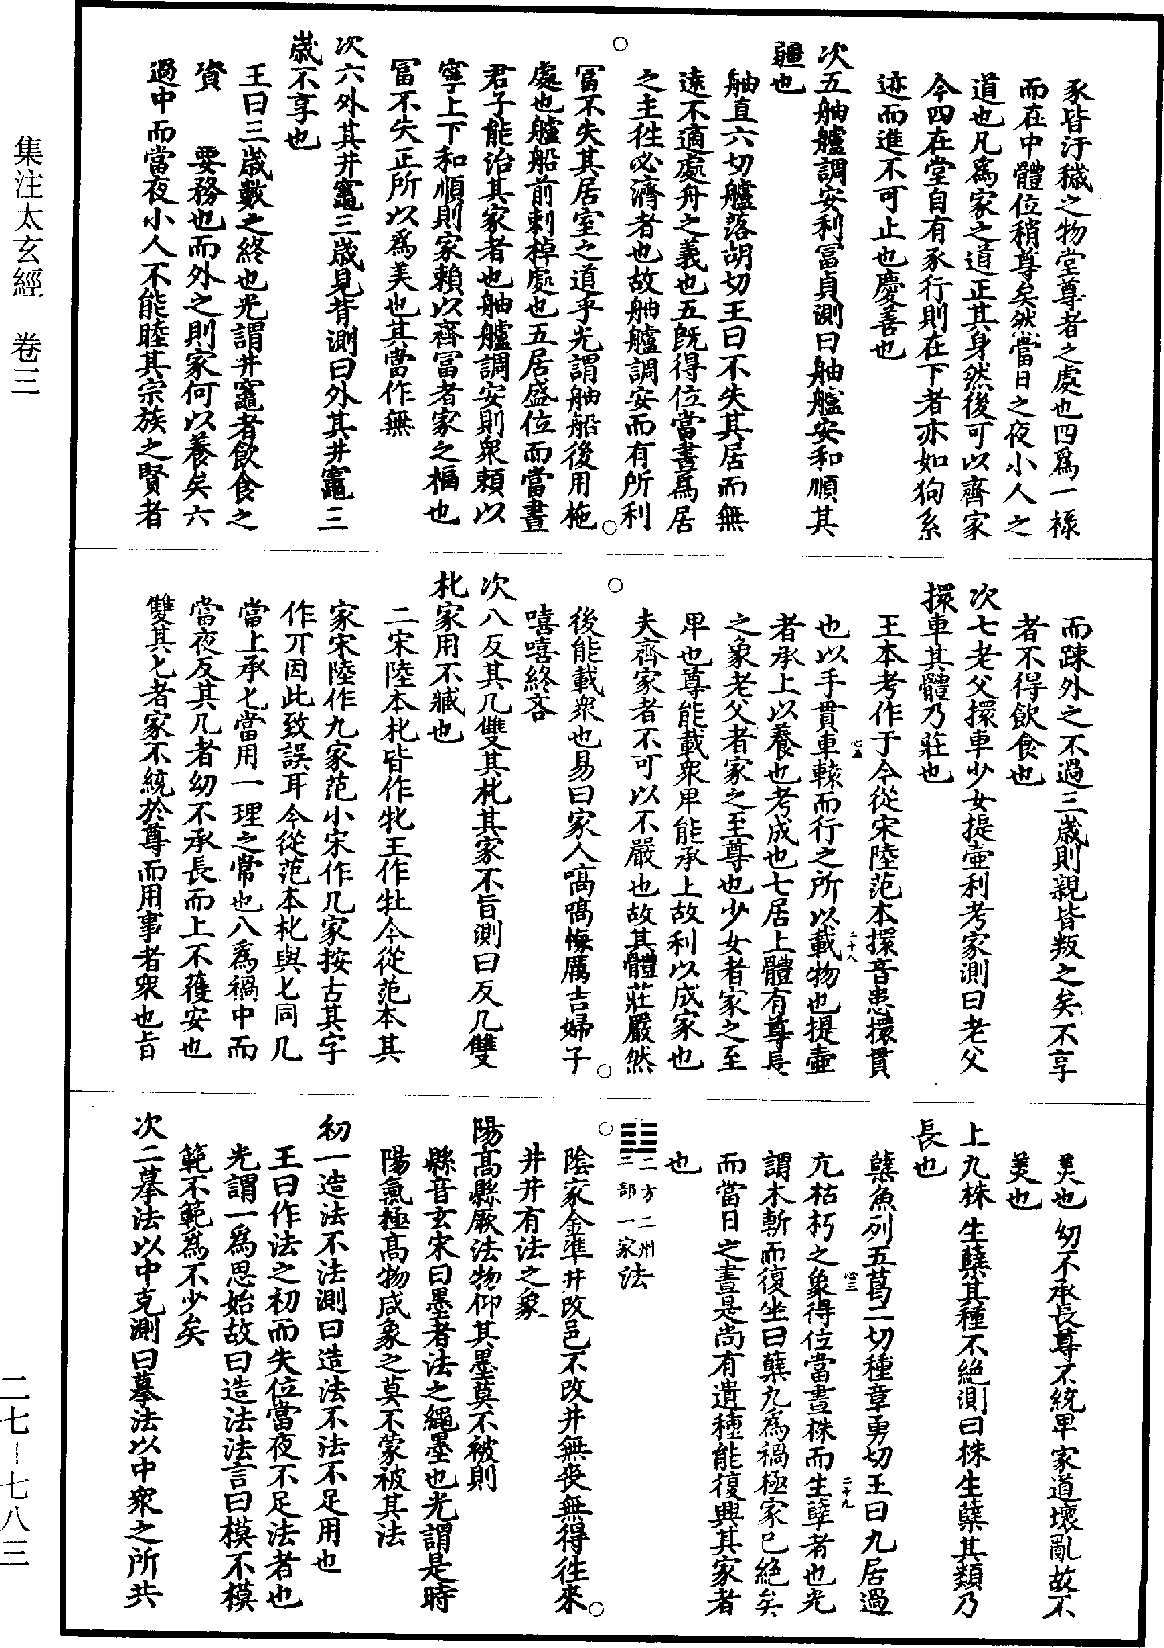 豕皆汙穢之物堂尊者之處也四爲一祿
而在中體位稍尊矣然當日之夜小人之
道也凡爲家之道正其身然後可以齊家
今四在堂自有豕行則在下者亦如狗系
迹而進不可止也慶善也
次五舳艫調安利富貞測曰舳艫安和順其
疆也
舳直六切艫落胡切王曰不失其居而無
遠不適處舟之義也五既得位當晝爲居
之主徃必濟者也故舳艫調安而有所利
冨不失其居室之道乎光謂舳船後用柂
處也艫船前刺棹處也五居盛位而當晝
君子能治其家者也舳艫調安則衆賴以
寧上下和順則家賴以齊冨者家之福也
冨不失正所以爲美也其當作無
次六外其井竈三歲見背測曰外其井竈三
歲不享也
王曰三歲數之終也光謂井竈者飲食之
資　要務也而外之則家何以養矣六
過中而當夜小人不能睦其宗族之賢者
而踈外之不過三歲則親皆叛之矣不享
者不得飲食也
次七老父擐車少女提壷利考家測曰老父
擐車其體乃莊也
王本考作于今從宋陸范本擐音患擐貫
也以手貫車轅而行之所以載物也提壷
者承上以養也考成也七居上體有尊長
之象老父者家之至尊也少女者家之至
卑也尊能載衆卑能承上故利以成家也
夫齊家者不可以不嚴也故其體莊嚴然
後能載衆也易曰家人嗃嗃悔厲吉婦子
嘻嘻終吝
次八反其几雙其牝其家不旨測曰反几雙
牝家用不臧也
二宋陸本牝皆作牝王作牡今從范本其
家宋陸作九家范小宋作几家按古其字
作丌因此致誤耳今從范本牝與匕同几
當上承匕當用一理之常也八爲禍中而
當夜反其几者幼不承長而上不獲安也
雙其匕者家不統於尊而用事者衆也旨
美也幼不承長尊不統卑家道壞亂故不
美也
上九株生櫱其種不絕測曰株生櫱其類乃
長也
櫱魚列五葛二切種章勇切王曰九居過
亢枯朽之象得位當晝株而生孽者也光
謂木斬而復生曰櫱九爲禍極家已絕矣
而當日之晝是尚有遺種能復興其家者
也
二方二州
三部一家法
陰家金準井改邑不改井無喪無得徃來
井井有法之象
陽高縣厥法物仰其墨莫不被則
縣音玄宋曰墨者法之繩墨也光謂是時
陽氣極高物咸象之莫不蒙被其法
初一造法不法測曰造法不法不足用也
王曰作法之初而失位當夜不足法者也
光謂一爲思始故曰造法法言曰模不模
範不範爲不少矣
次二摹法以中克測曰摹法以中衆之所共
集注太玄經　卷三
二七－七八三